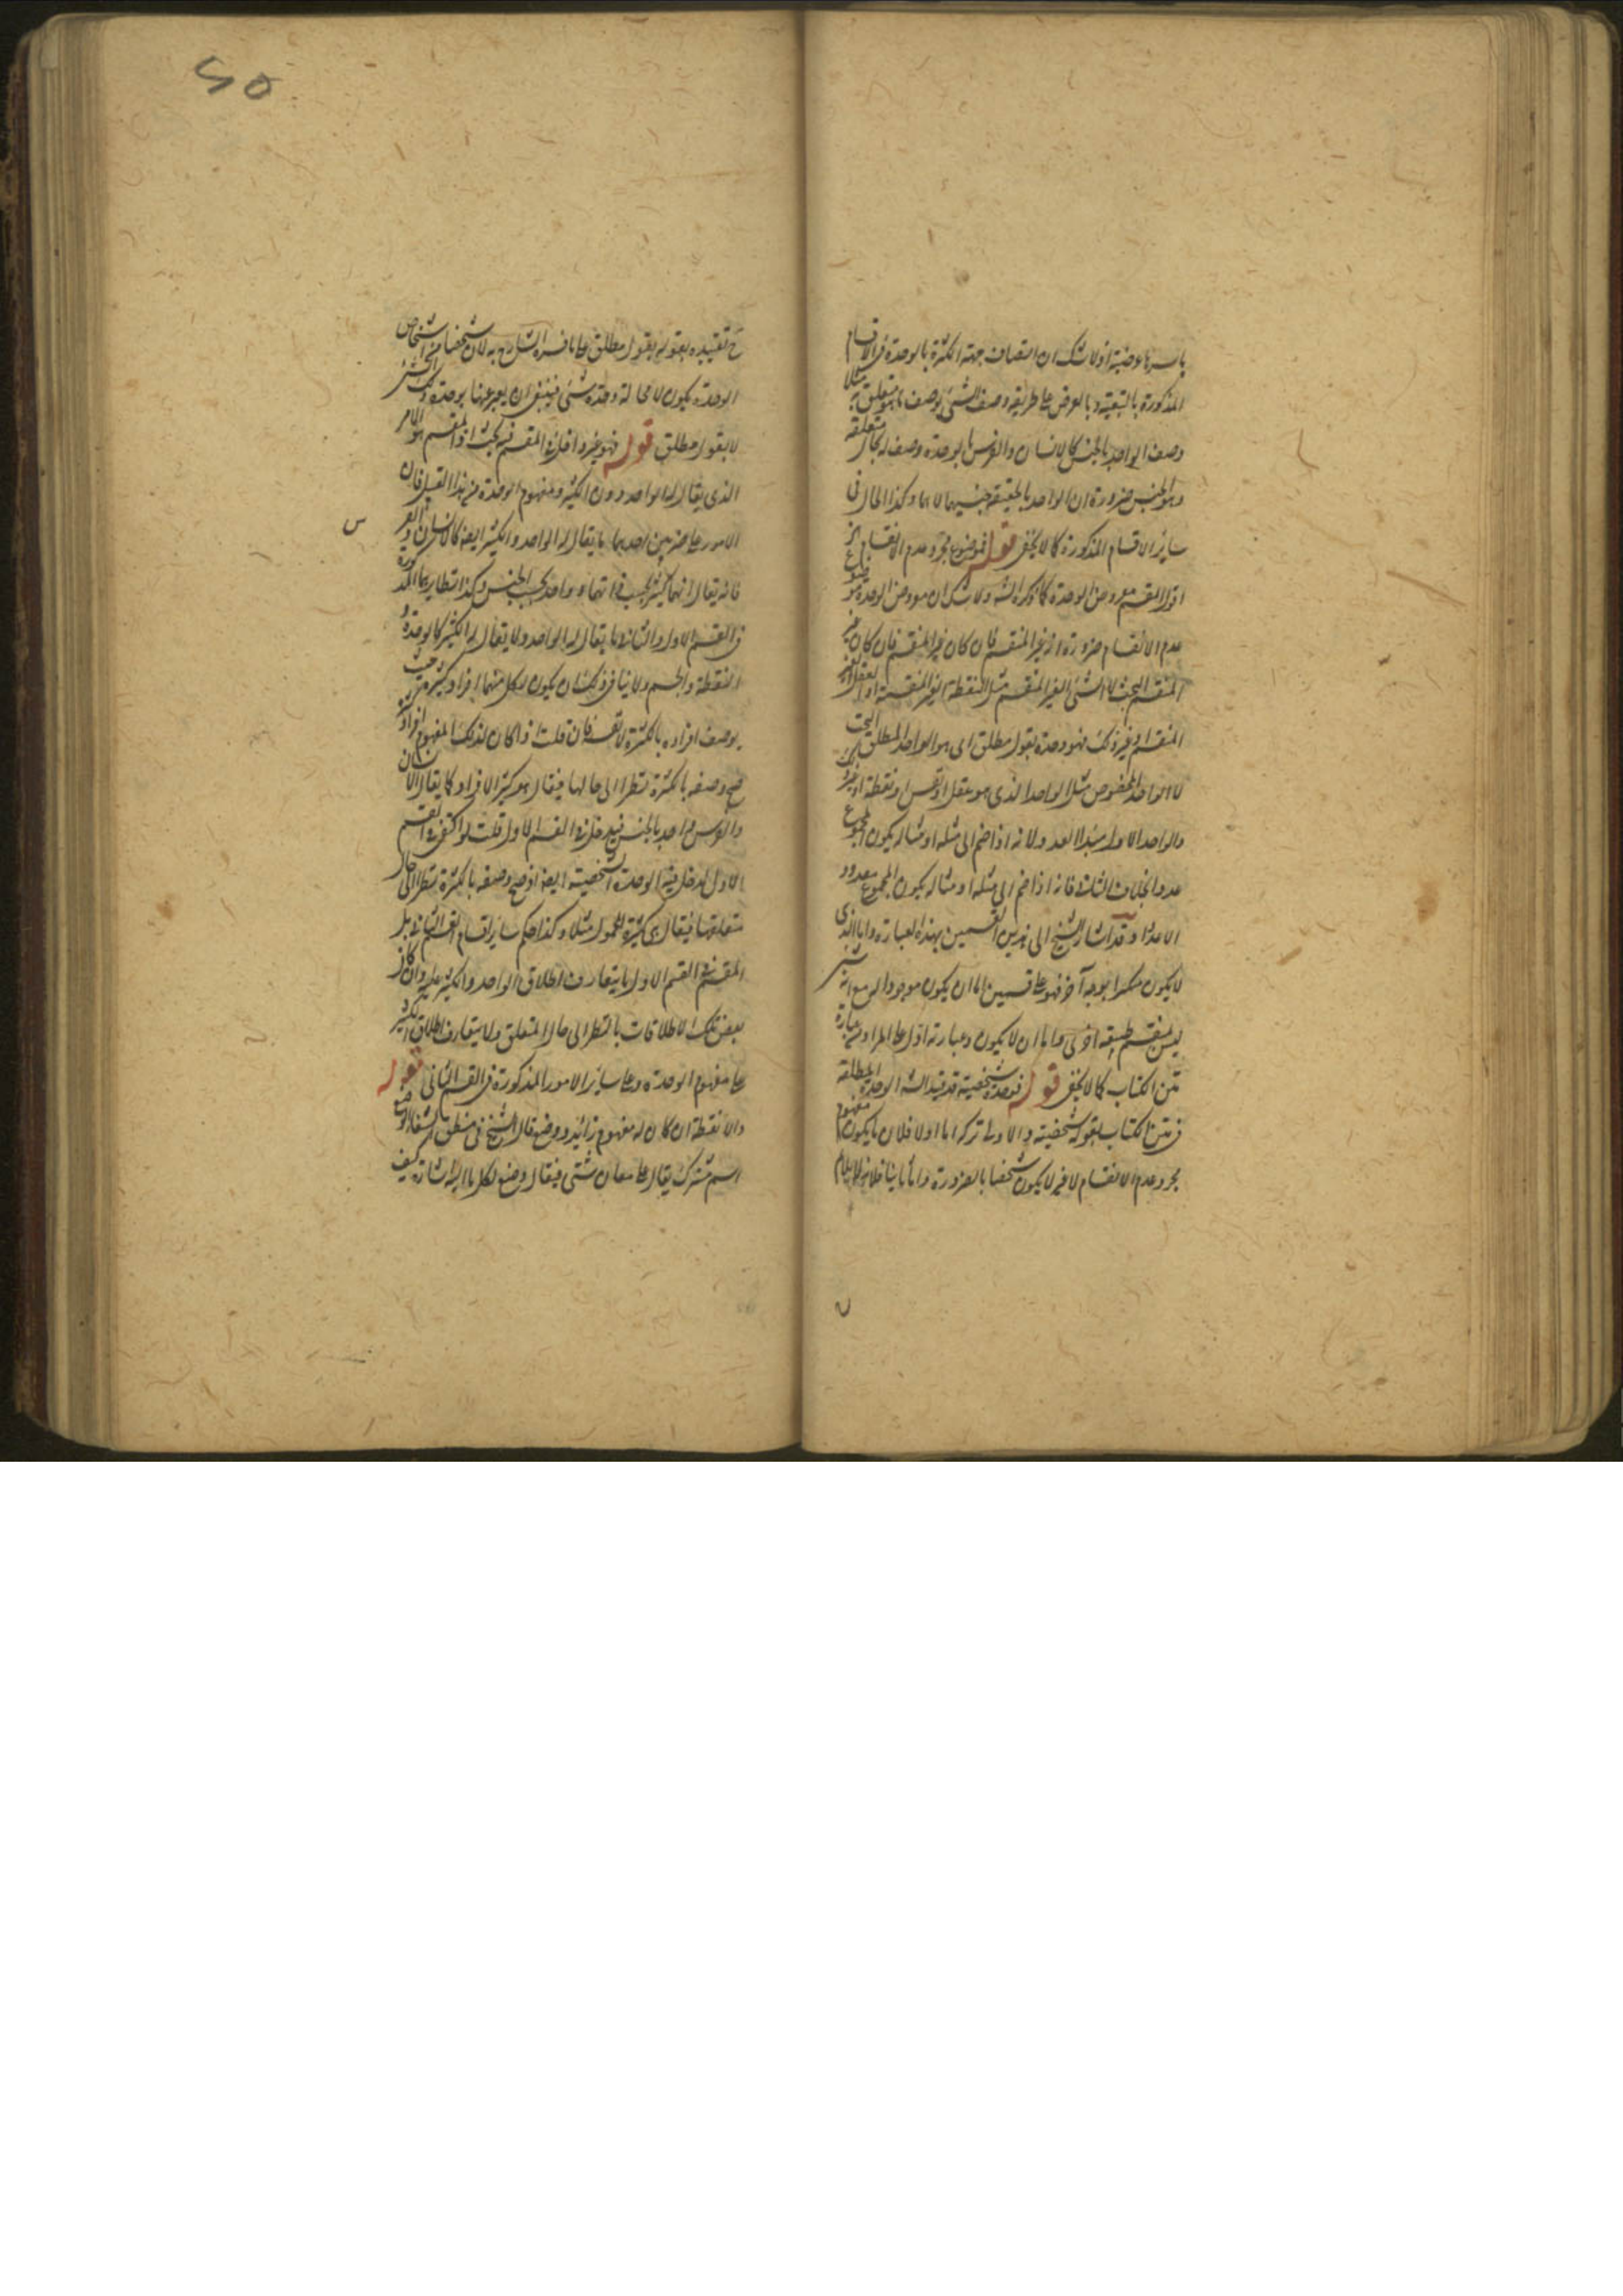 باسرها عرضية اذ لا شك ان اتصاف جهة الكثرة بالوحدة فى الاقسام
المذكورة بالتبعية وبالعرض على طريقة وصف الشئ بوصف ما هو متعلق به مثلا
وصف الواحد بالجنس كالانسان والفرس بالوحدة وصف له بحال متعلقه
وهو الجنس ضرورة ان الواحد بالحقيقة جنسهما لا هما وكذا الحال فى
ساير الاقسام المذكورة كما لا يخفى قوله فموضوع مجرد عدم الانقسام
اقول المقسم معروض الوحدة كما ذكره الش ولا شك ان معروض الوحدة موضوع
عدم الانقسام ضرورة انه غير المنقسم فان كان غير المنقسم فان كان غير
المنقسم البحت لا الشئ الغير المنقسم مثل النقطة الغير المنقسمة او العقل الغير
المنقسم او غير ذلك فهو وحدة بقول مطلق اى هو الواحد المطلق البحت
لا الواحد المخصوص مثل الواحد الذى هو عقل او نفس او نقطة او غير ذلك
والواحد الاول مبدا العدد لانه اذا ضم الى مثله او مثاله يكون المجموع
عددا بخلاف الثانى فانه اذا ضم الى مثله او مثاله يكون المجموع معدودا
لا عددا وقد اشار الشيخ الى هذين القسمين بهذه العبارة واما الذى
لا يكون منكرا بوجه آخر فهو على قسمين اما ان يكون موجودا له مع انه شئ
ليس بمنقسم طبيعة اخرى واما ان لا يكون وعبارته ادل على المراد من عبارة
متن الكتاب كما لا يخفى قوله فوحدة شخصية قد قيد الش الوحدة المطلقة
فى متن الكتاب بقوله شخصية والاولى تركه اما اولا فلان ما يكون مفهوم
مجرد عدم الانقسام لا غير لا يكون شخصا بالضرورة واما ثانيا فلانه لا يلايم
ح تقييده بقوله بقول مطلق على ما فسره الشارح به لان شخصا من اشخاص
الوحدة يكون لا محالة وحدة شئ فينبغى ان يعبر عنها بوحدة ذلك الشئ
لا بقول مطلق قوله فهو غير داخل فى المقسم فيه بحث اذ المقسم هو الامر
الذى يقال له الواحد دون الكثير ومفهوم الوحدة من هذا القبيل فان
الامور على ضربين احدهما ما يقال له الواحد والكثير ايضا كالانسان والفرس
فانه يقال انهما كثير بحسب ذاتهما وواحد بحسب الجنس وكذا نظايرهما المذكورة
فى القسم الاول والثانى ما يقال له الواحد ولا يقال له الكثير كالوحدة و
النقطة والجسم ولا ينافى ذلك ان يكون لكل منهما افراد كثيرة حيث
يوصف افراده بالكثرة لا نفسه فان قلت اذا كان لذلك المفهوم افراد
صح وصفه بالكثرة نظرا الى حالها فيقال هو كثير الافراد كما يقال الانسان
والفرس واحد بالجنس فيدخل فى القسم الاول قلت لو اكتفى فى القسم
الاول لدخل فيه الوحدة الشخصية ايضا اذ صح وصفه بالكثرة نظرا الى حال
متعلقها فيقال هى كثيرة المحمول مثلا وكذا حكم ساير اقسام القسم الثانى بل
المقسم فى القسم الاول ما يتعارف اطلاق الواحد والكثير عليه وان كان
بعض تلك الاطلاقات بالنظر الى حال المتعلق ولا يتعارف اطلاق الكثير
على مفهوم الوحدة وعلى ساير الامور المذكورة فى القسم الثانى قوله
والا نقطة ان كان له مفهوم زائد ذو وضع قال الشيخ فى منطق الشفا الوضع
اسم مشترك يقال على معان شتى فيقال وضع لكل ما اليه اشارة كيف